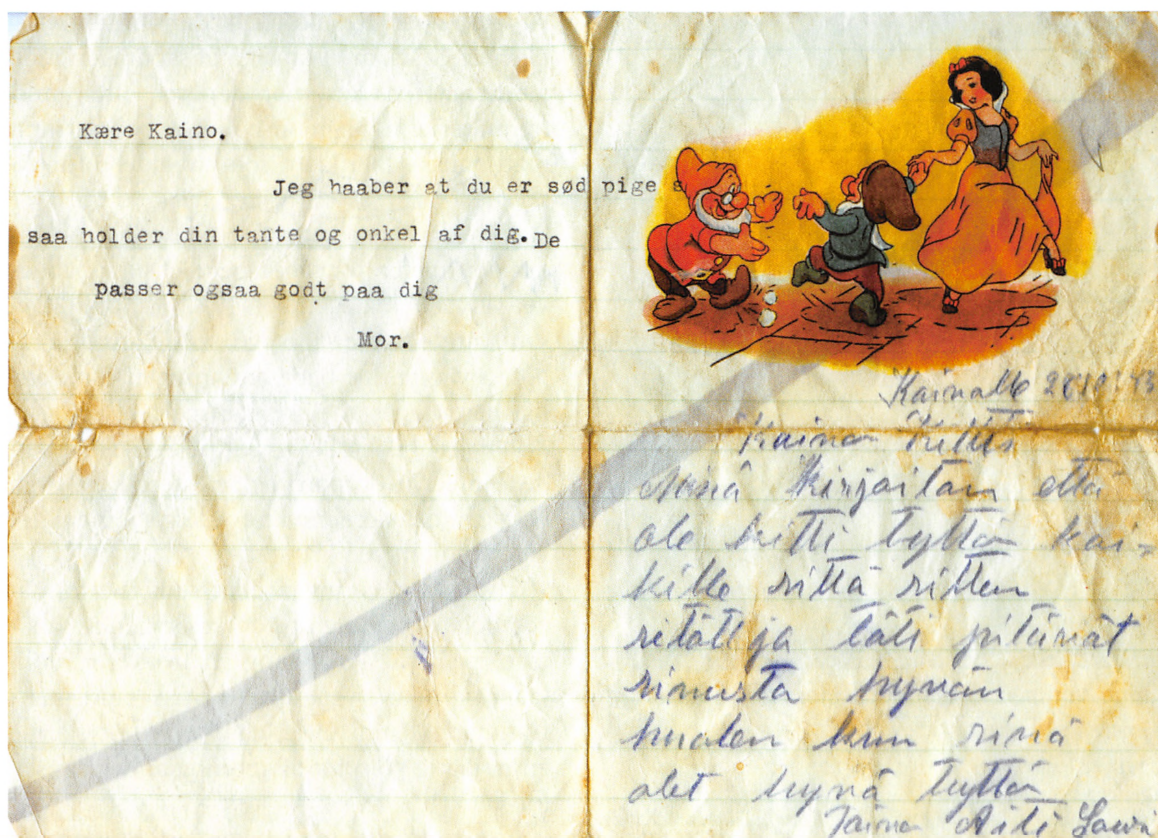 Kære Kaino.
Jeg haaber at du er sød pige s
saa holder din tante og onkel af dig. De
passer ogsaa godt paa dig
Mor.
Kainolle
Kainon Kiltti
Minä kirjoitan että
ole kiltti tyttö kai=
kille sittä sitten
setät ja täti pitävät
sinusta hyvän
huolen kun sinä
olet hyvä tyttö
Äiti